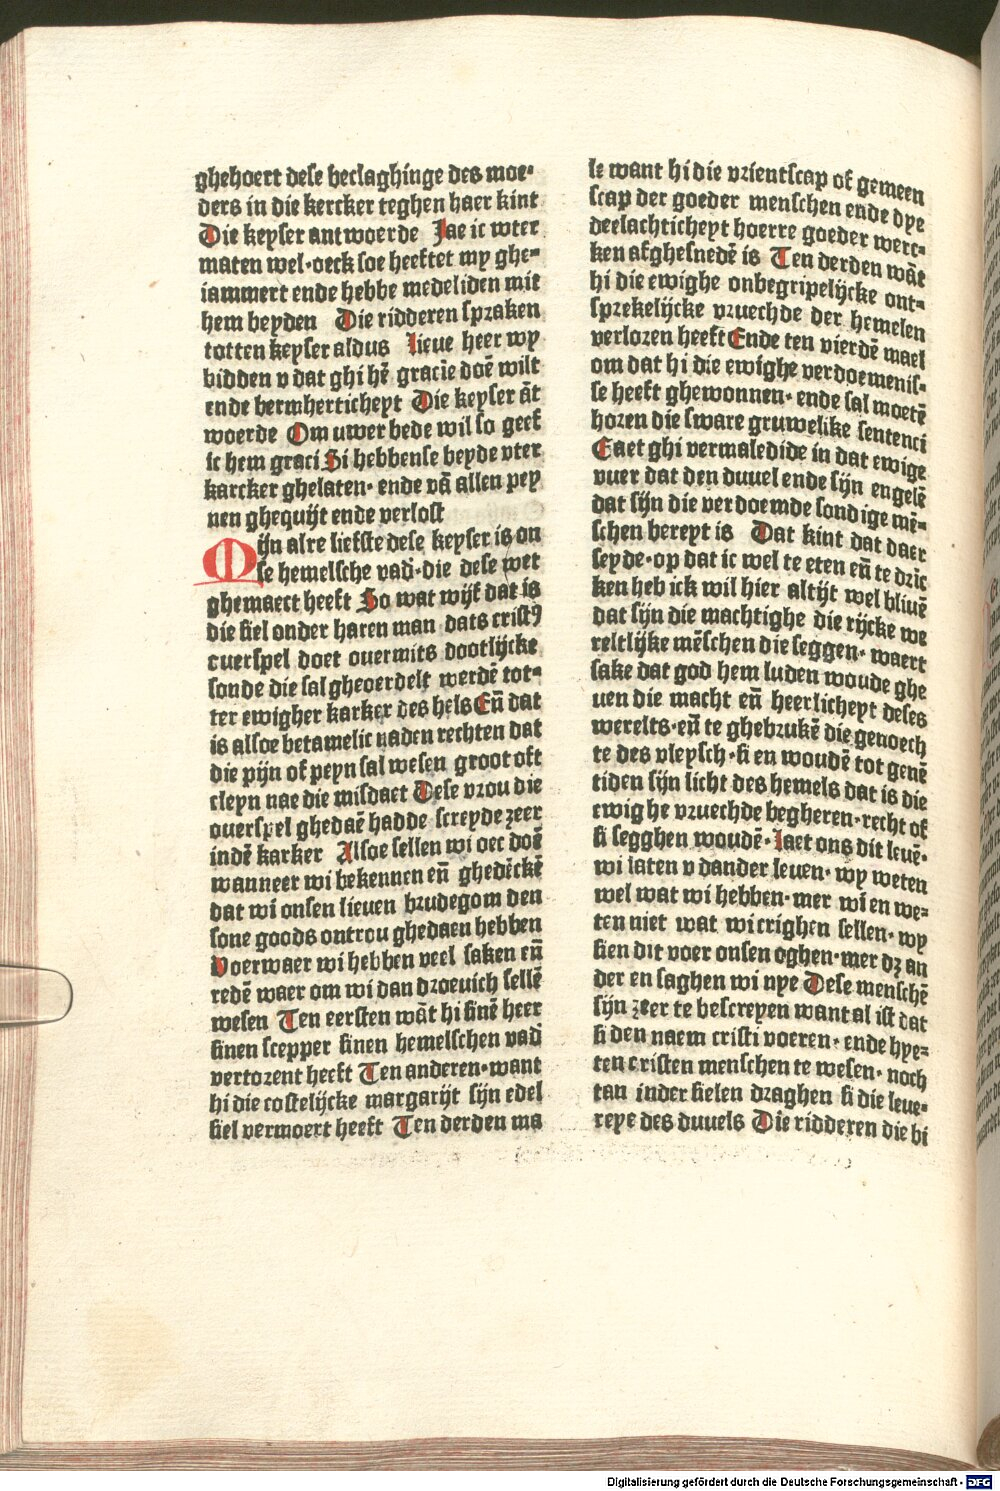 ghehoert dese beclaghinge des moe⸗
ders in die kercker teghen haer kint
Die keyser antwoerde Jae ic wter
maten wel·oeck soe heeftet my ghe⸗
iammert ende hebbe medeliden mit
hem beyden Die ridderen spraken
totten keyser aldus lieue heer wy
bidden v dat ghi hē gracie doē wilt
ende bermherticheyt Die keyser āt
woerde Om uwer bede wil so geef
ic hem graci Si hebbense beyde vter
karcker ghelaten· ende vā allen pey
nen ghequijt ende verlost
Mijn alre liefste dese keyser is on
se hemelsche vad̄·die dese wet
ghemaect heeft So wat wijf dat is
die siel onder haren man dats cristꝰ
ouerspel doet ouermits dootlijcke
sonde die sal gheoerdelt werdē tot⸗
ter ewigher karker des hels Eñ dat
is alsoe betamelic naden rechten dat
die pijn of peyn sal wesen groot oft
cleyn nae die misdaet Dese vrou die
ouerspel ghedaē hadde screyde zeer
indē karker Alsoe sellen wi oec doē
wanneer wi bekennen eñ ghedēckē
dat wi onsen lieuen brudegom den
sone goods ontrou ghedaen hebben
Voerwaer wi hebben veel saken eñ
redē waer om wi dan droeuich sellē
wesen Ten eersten wāt hi sinē heer
sinen scepper sinen hemelschen vad̄
vertorent heeft Ten anderen·want
hi die costelijcke margarijt sijn edel
siel vermoert heeft Ten derden ma
le want hi die vrientscap of gemeen
scap der goeder menschen ende dye
deelachticheyt hoerre goeder werc⸗
ken afghesnedē is Ten derden wāt
hi die ewighe onbegripelijcke ont⸗
sprekelijcke vruechde der hemelen
verloren heeft Ende ten vierdē mael
om dat hi die ewighe verdoemenis⸗
se heeft ghewonnen· ende sal moetē
horen die sware gruwelike sentenci
Gaet ghi vermaledide in dat ewige
vuer dat den duuel ende sijn engelē
dat sijn die verdoemde sondige mē⸗
schen bereyt is Dat kint dat daer
seyde·op dat ic wel te eten eñ te drīc
ken heb ick wil hier altijt wel bliuē
dat sijn die machtighe die rijcke we
reltlijke mēschen die seggen· waert
sake dat god hem luden woude ghe
uen die macht eñ heerlicheyt deses
werelts·eñ te ghebrukē die genoech
te des vleysch·si en woudē tot genē
tiden sijn licht des hemels dat is die
ewighe vruechde begheren·recht of
si segghen woudē·laet ons dit leuē·
wi laten v dander leuen· wy weten
wel wat wi hebben·mer wi en we⸗
ten niet wat wi crighen sellen· wy
sien dit voer onsen oghen·mer dꝫ an
der en saghen wi nye Dese menschē
sijn zeer te bescreyen want al ist dat
si den naem cristi voeren· ende hye⸗
ten cristen menschen te wesen· noch
tan inder sielen draghen si die leue⸗
reye des duuels Die ridderen die bi
Digitalisierung gefördert durch die Deutsche Forschungsgemeinschaft - DFG